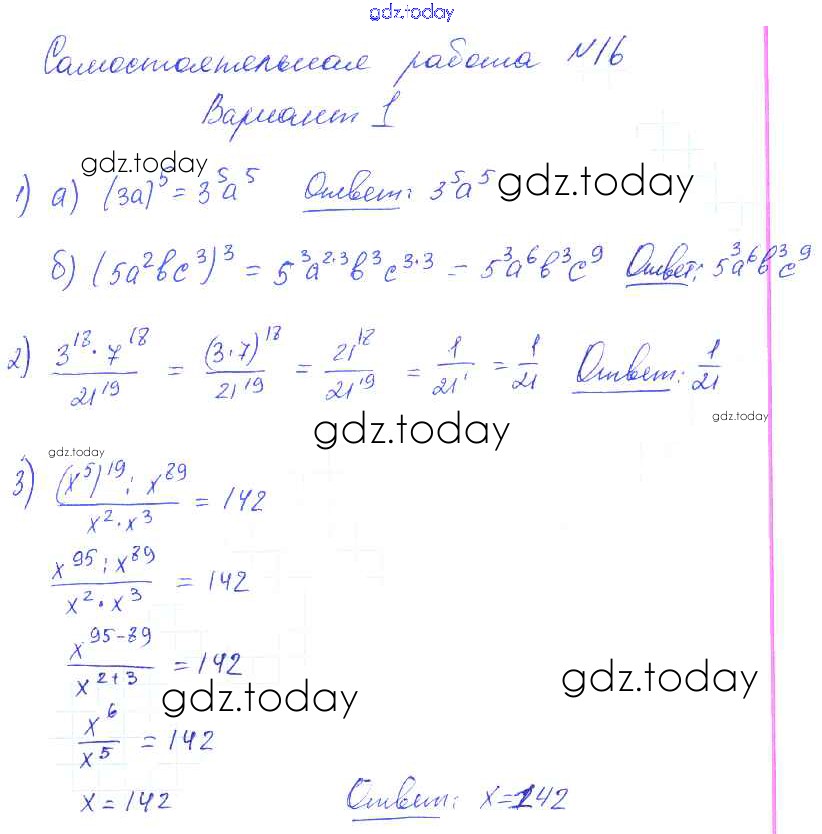 gdz.today
Самостоятельная работа №16
Вариант 1
gdz.today
1) а) (3a)⁵ = 3⁵a⁵ Ответ: 3⁵a⁵ gdz.today
б) (5a²bc³)³ = 5³a²·³b³c³·³ = 5³a⁶b³c⁹ Ответ: 5³a⁶b³c⁹
2) (3¹⁸ · 7¹⁸)/21¹⁹ = (3·7)¹⁸/21¹⁹ = 21¹⁸/21¹⁹ = 1/21¹ = 1/21 Ответ: 1/21
gdz.today
gdz.today
gdz.today
3) ((x⁵)¹⁹ : x⁸⁹)/(x² · x³) = 142
(x⁹⁵ : x⁸⁹)/(x² · x³) = 142
x⁹⁵⁻⁸⁹/x²⁺³ = 142
gdz.today gdz.today
x⁶/x⁵ = 142
x = 142 Ответ: x = 142